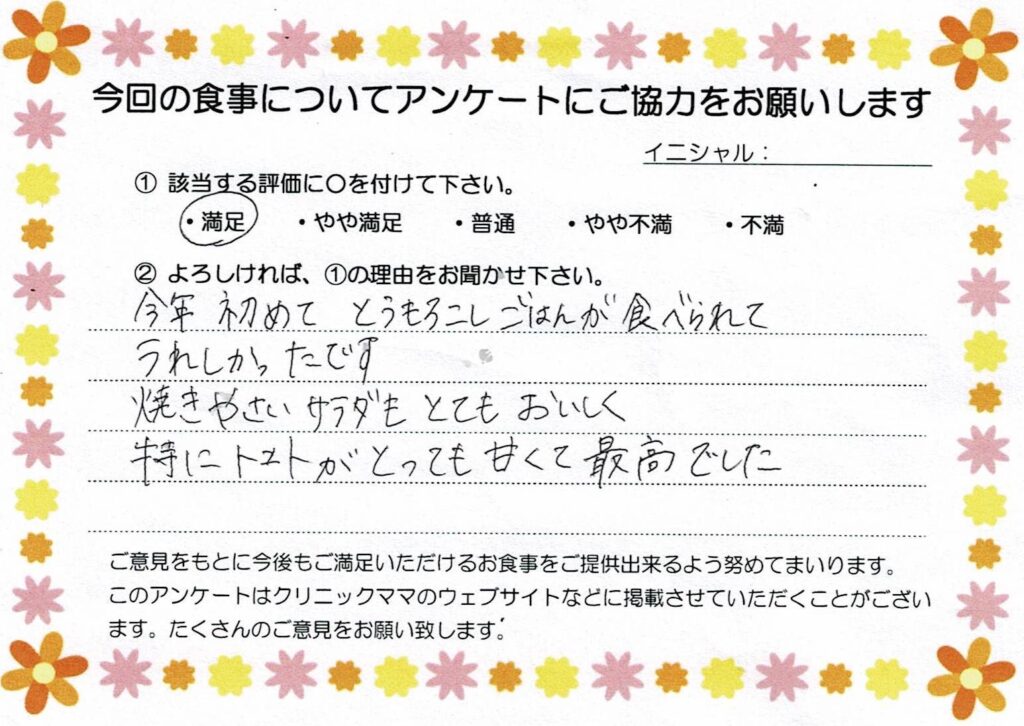 今回の食事についてアンケートにご協力をお願いします
イニシャル：
① 該当する評価に〇を付けて下さい。
・満足 ・やや満足 ・普通 ・やや不満 ・不満
② よろしければ、①の理由をお聞かせ下さい。
今年 初めて とうもろこしごはんが食べられて
うれしかったです
焼きやさいサラダも とても おいしく
特にトマトがとっても甘くて最高でした
ご意見をもとに今後もご満足いただけるお食事をご提供出来るよう努めてまいります。
このアンケートはクリニックママのウェブサイトなどに掲載させていただくことがござい
ます。たくさんのご意見をお願い致します。